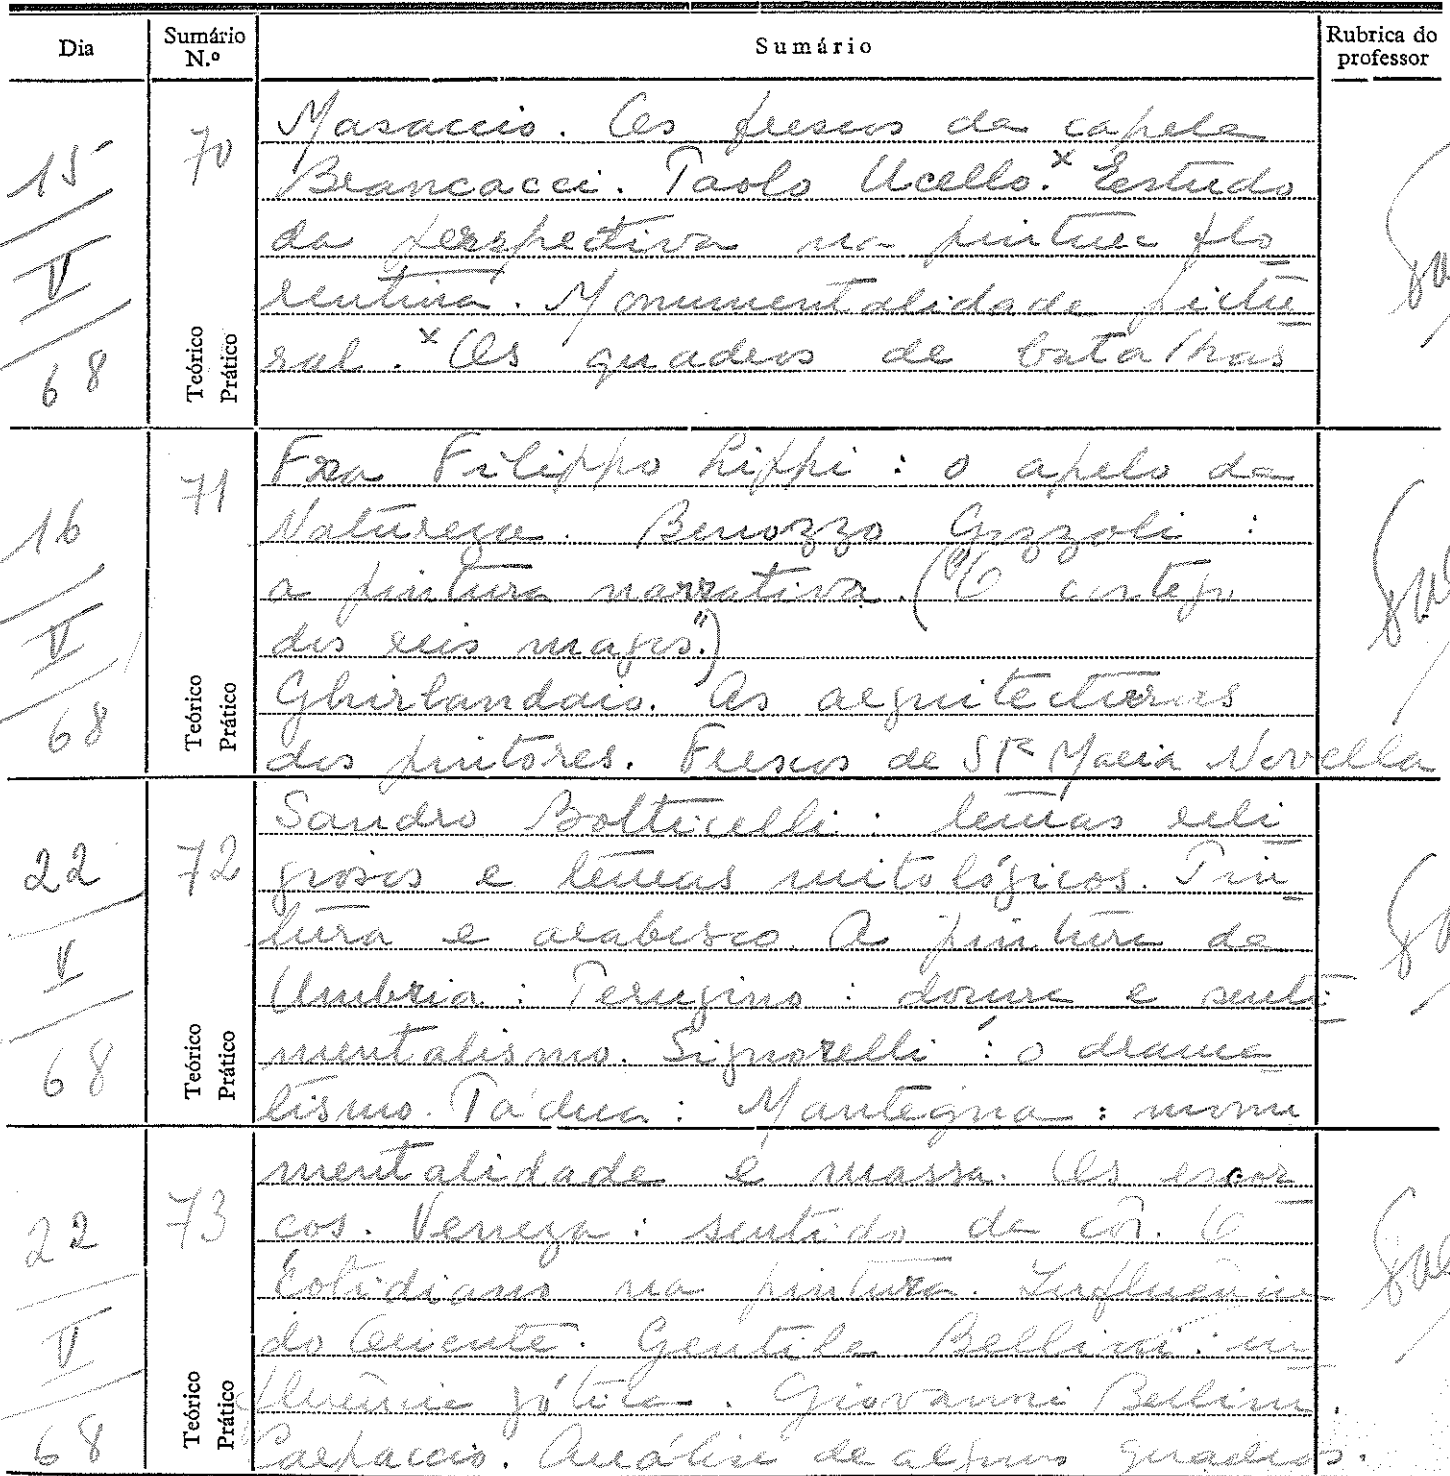 Dia
Sumário N.º
Sumário
Rubrica do professor
15
V
68
70
Teórico
Prático
Masaccio. Os frescos da capela
Brancacci. Paolo Ucello.ˣ Estudo
da perspectiva na pintura flo
rentina. Monumentalidade pictu
ral. ˣ Os quadros de batalhas
16
V
68
71
Teórico
Prático
Fra Filippo Lippi : o apelo da
Natureza. Benozzo Gozzoli :
a pintura narrativa. ("O cortejo
dos reis magos".)
Ghirlandaio. As arquitecturas
dos pintores. Frescos de Stª Maria Novella
22
V
68
72
Teórico
Prático
Sandro Botticelli : temas reli
giosos e temas mitológicos. Pin
tura e arabesco. A pintura da
Umbria : Perugino : doçura e senti
mentalismo. Signorelli : o drama
tismo. Pádua : Mantegna : monu
22
V
68
73
Teórico
Prático
mentalidade e massa. Os escor
ços. Veneza : sentido da côr. O
Cotidiano na pintura. Influência
do Oriente. Gentile Bellini : in
fluência gótica. Giovanni Bellini.
Carpaccio. Análise de alguns quadros.